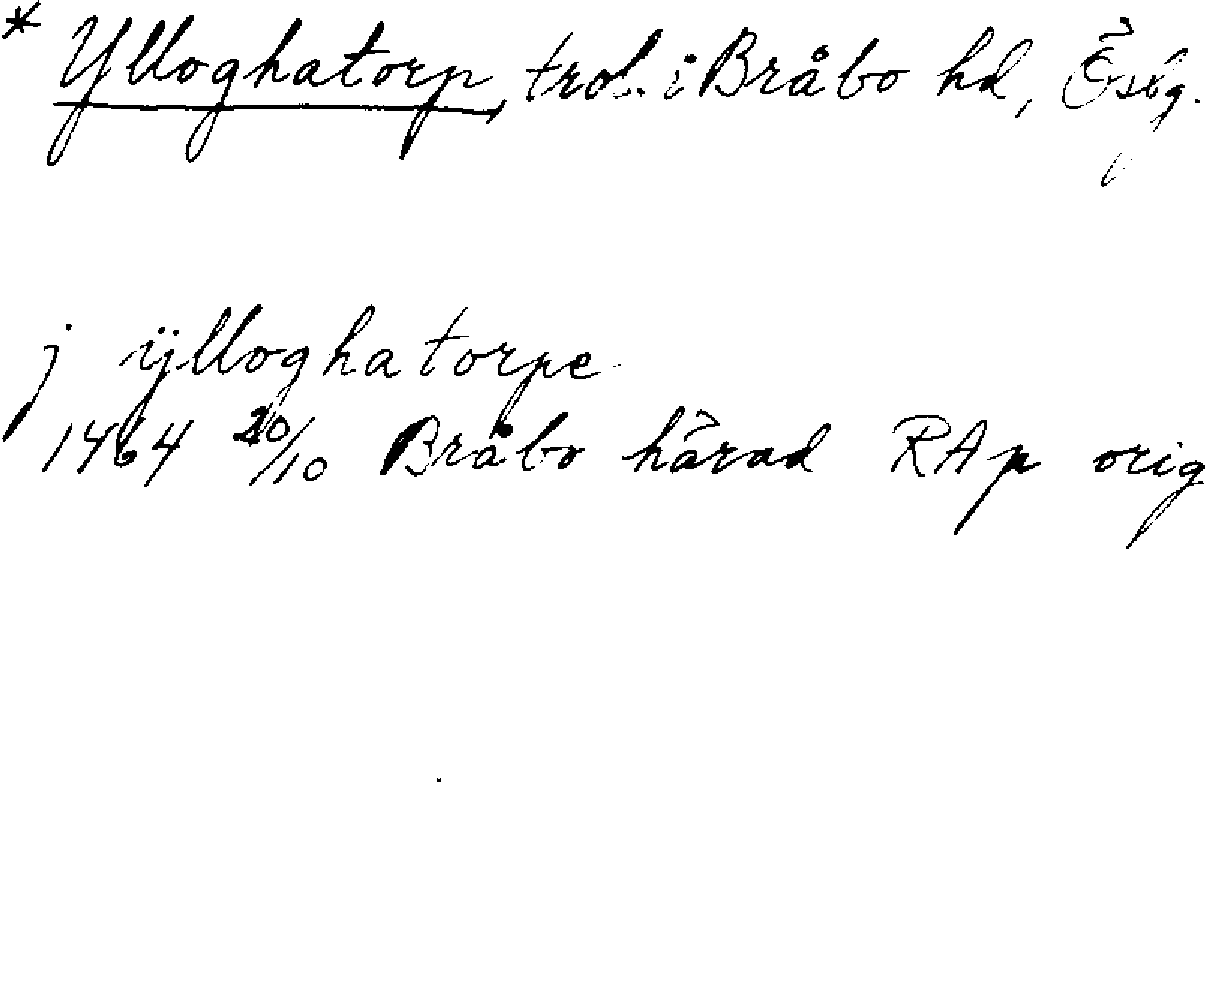 * Ylloghatorp, trol. i Bråbo hd, Östg.
j ÿlloghatorpe
1464 20/10 Bråbo härad RAp orig